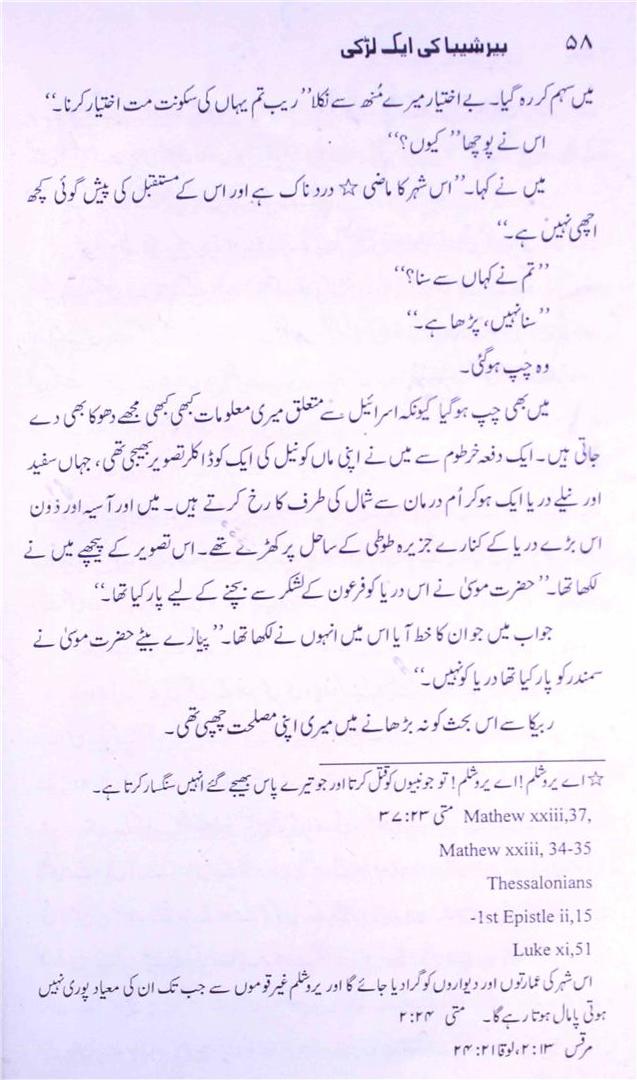 ۵۸ بیر شیبا کی ایک لڑکی
میں سہم کر رہ گیا۔ بے اختیار میرے مُنھ سے نکلا ’’ریب تم یہاں کی سکونت مت اختیار کرنا۔‘‘
اس نے پوچھا ’’کیوں؟‘‘
میں نے کہا۔ ’’اس شہر کا ماضی ☆ درد ناک ہے اور اس کے مستقبل کی پیش گوئی کچھ
اچھی نہیں ہے۔‘‘
’’تم نے کہاں سے سنا؟‘‘
’’سنا نہیں، پڑھا ہے۔‘‘
وہ چپ ہوگئی۔
میں بھی چپ ہوگیا کیونکہ اسرائیل سے متعلق میری معلومات کبھی کبھی مجھے دھوکا بھی دے
جاتی ہیں۔ ایک دفعہ خرطوم سے میں نے اپنی ماں کو نیل کی ایک کوڈاکلر تصویر بھیجی تھی، جہاں سفید
اور نیلے دریا ایک ہوکر اُم درمان سے شمال کی طرف کا رخ کرتے ہیں۔ میں اور آسیہ اور ذوٰن
اس بڑے دریا کے کنارے جزیرہ طوطی کے ساحل پر کھڑے تھے۔ اس تصویر کے پیچھے میں نے
لکھا تھا۔ ’’حضرت موسیٰ نے اس دریا کو فرعون کے لشکر سے بچنے کے لیے پار کیا تھا۔‘‘
جواب میں جو ان کا خط آیا اس میں انہوں نے لکھا تھا۔ ’’پیارے بیٹے حضرت موسیٰ نے
سمندر کو پار کیا تھا دریا کو نہیں۔‘‘
ریبکا سے اس بحث کو نہ بڑھانے میں میری اپنی مصلحت چھپی تھی۔
☆ اے یروشلم! اے یروشلم! تو جو نبیوں کو قتل کرتا اور جو تیرے پاس بھیجے گئے انہیں سنگسار کرتا ہے۔
Mathew xxiii,37, متی ۲۳:۳۷
Mathew xxiii, 34-35
Thessalonians
-1st Epistle ii,15
Luke xi,51
اس شہر کی عمارتوں اور دیواروں کو گرا دیا جائے گا اور یروشلم غیر قوموں سے جب تک ان کی معیاد پوری نہیں
ہوتی پامال ہوتا رہے گا۔ متی ۲:۲۴
مرقس ۲:۱۳، لوقا ۲۴:۲۱